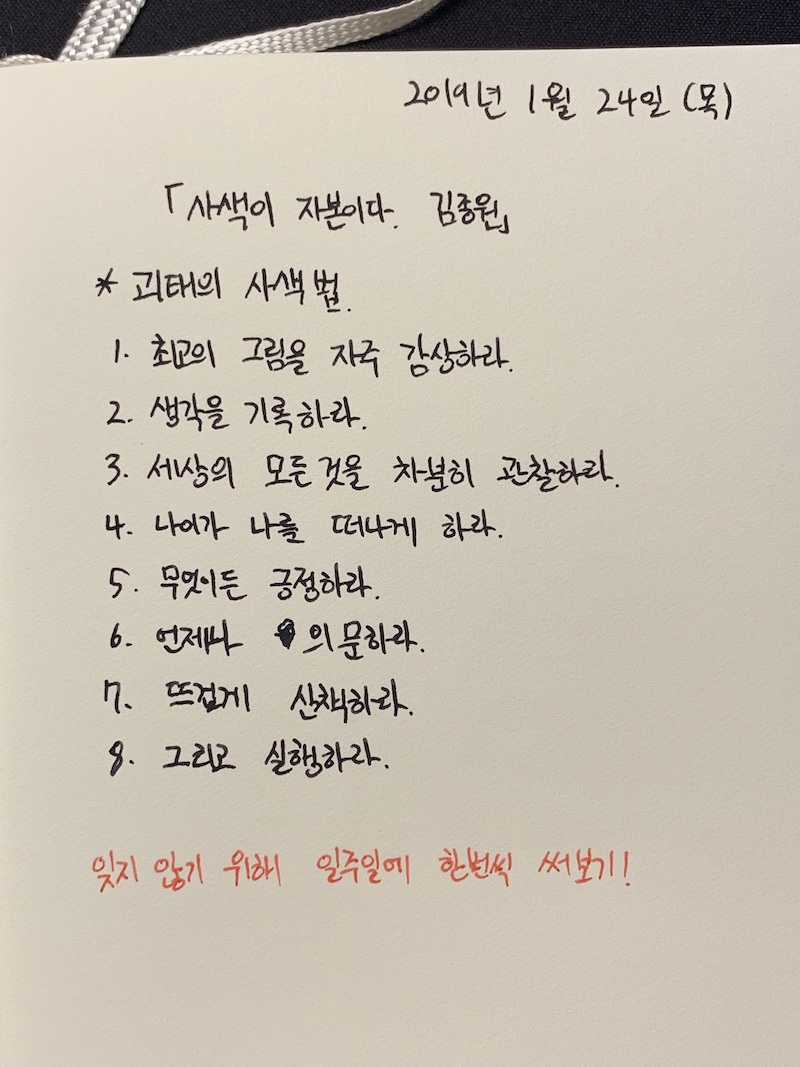 2019년 1월 24일 (목)
「사색이 자본이다. 김종원」
* 괴테의 사색법.
1. 최고의 그림을 자주 감상하라.
2. 생각을 기록하라.
3. 세상의 모든것을 차분히 관찰하라.
4. 나이가 나를 떠나게 하라.
5. 무엇이든 긍정하라.
6. 언제나 의문하라.
7. 뜨겁게 산책하라.
8. 그리고 실행하라.
잊지 않기 위해 일주일에 한번씩 써보기!